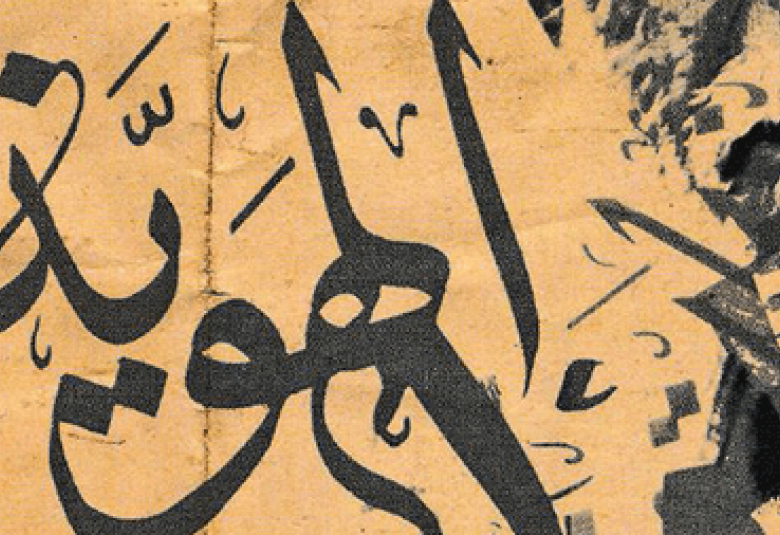 الهوية